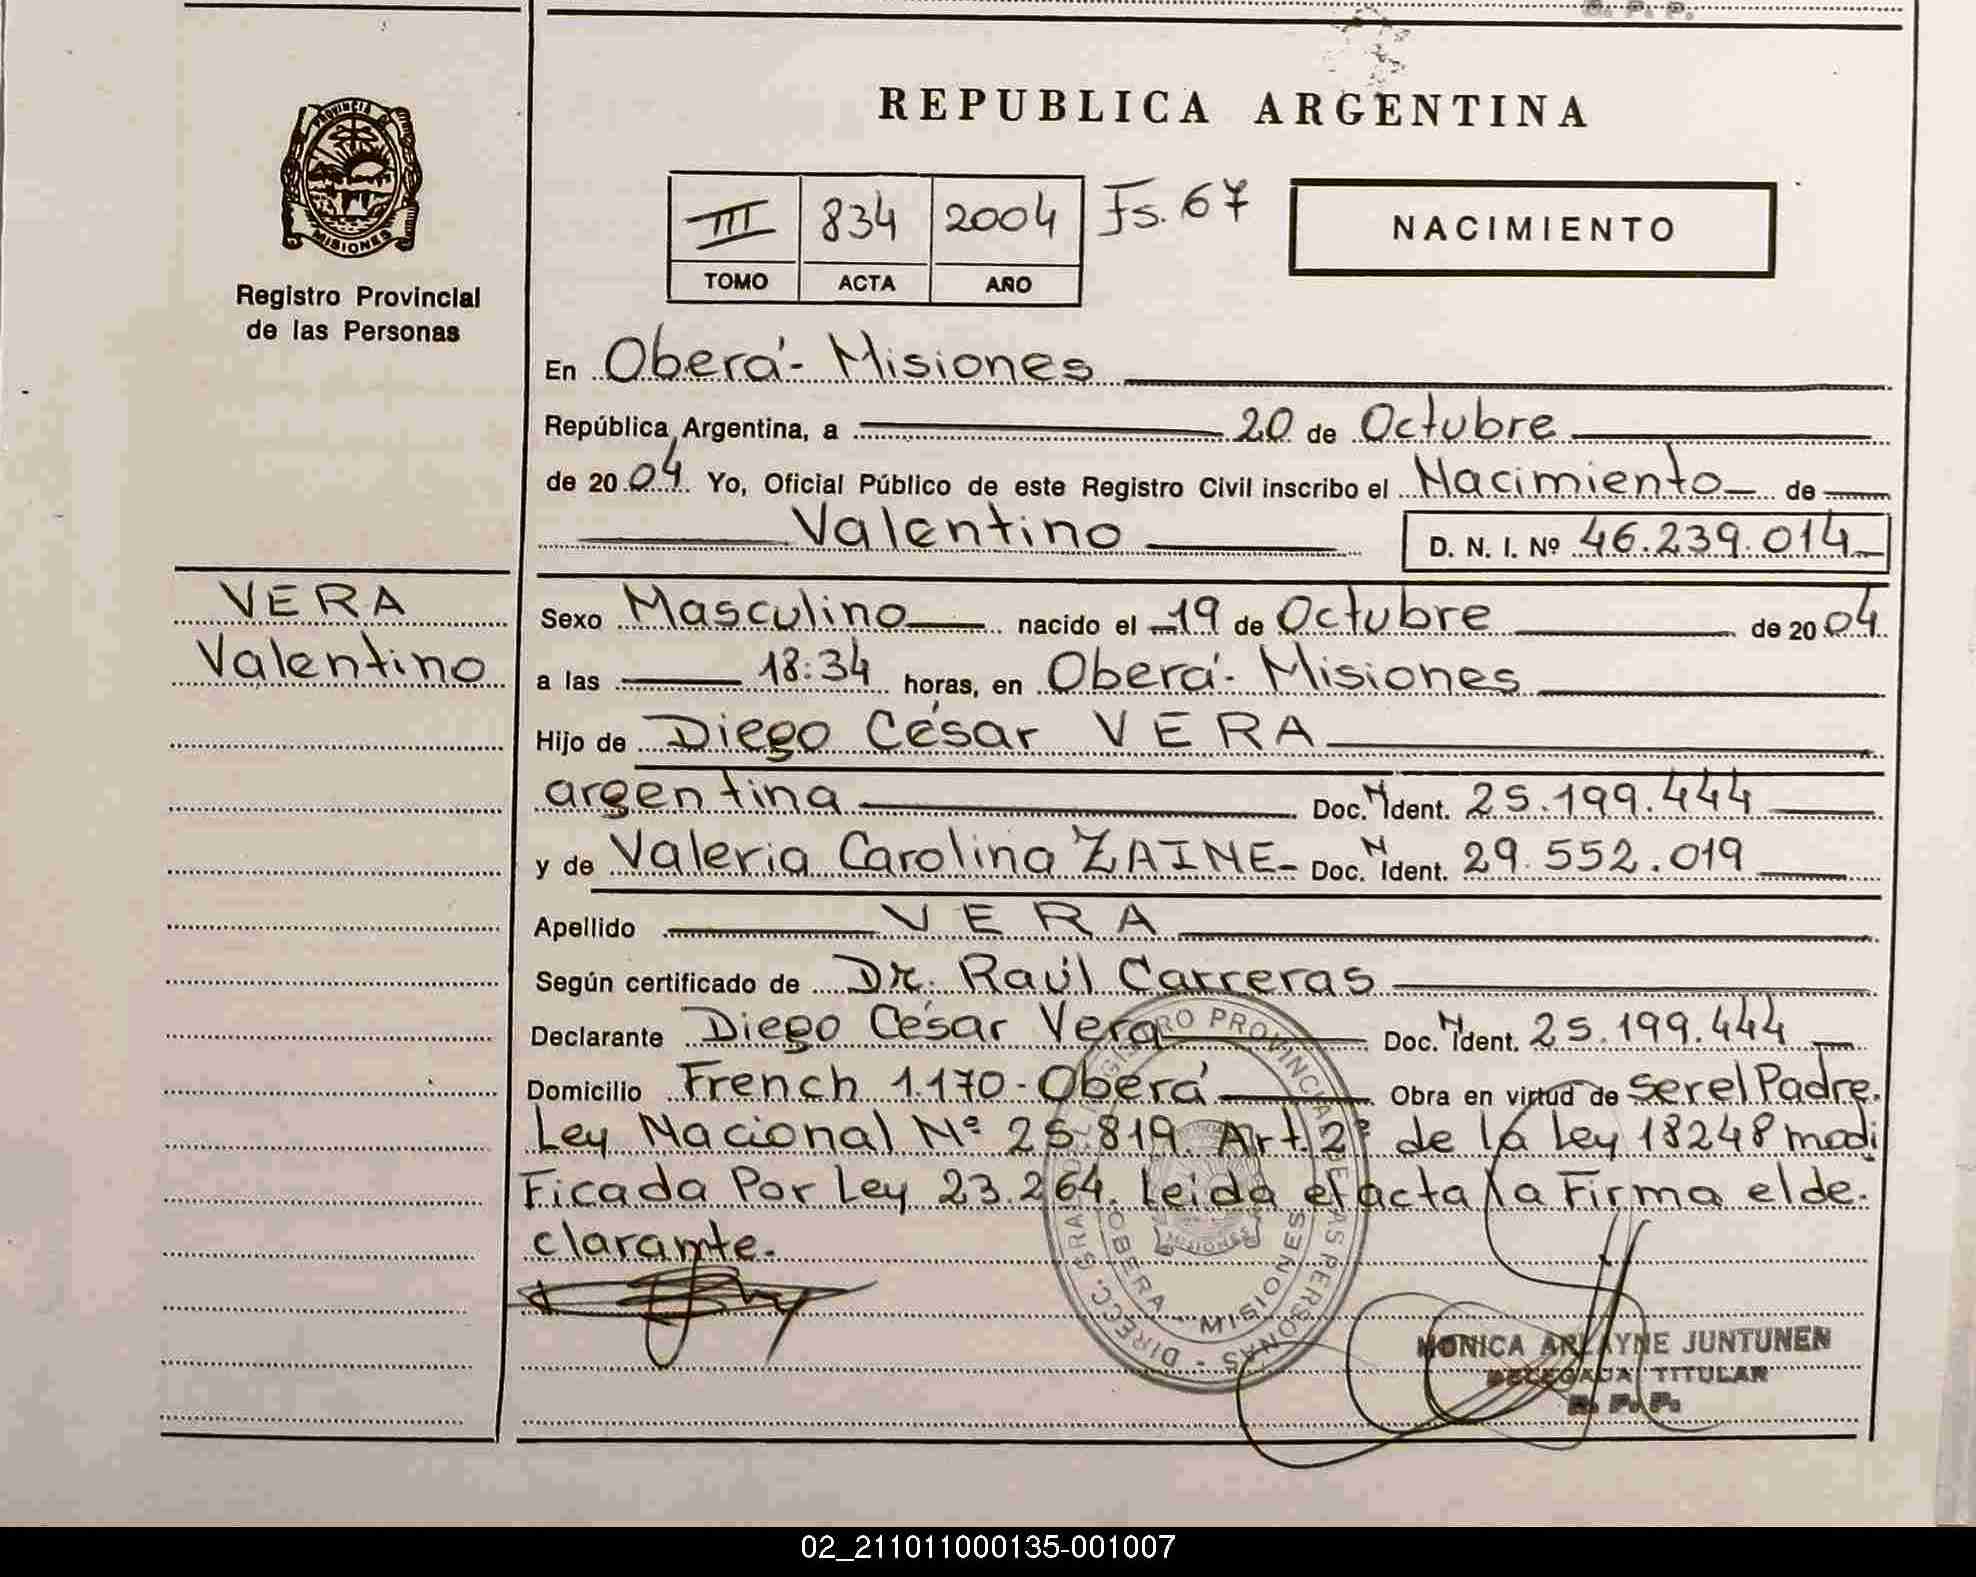 REPUBLICA ARGENTINA
PROVINCIA DE
MISIONES
Registro Provincial
de las Personas
III 834 2004 Fs. 67
TOMO ACTA AÑO
NACIMIENTO
En Oberá - Misiones
República Argentina, a 20 de Octubre
de 2004 Yo, Oficial Público de este Registro Civil inscribo el Nacimiento de
Valentino D. N. I. Nº 46.239.014
VERA
Valentino
Sexo Masculino nacido el 19 de Octubre de 2004
a las 18:34 horas, en Oberá - Misiones
Hijo de Diego César VERA
argentina Doc. N Ident. 25.199.444
y de Valeria Carolina ZAINE - Doc. N Ident. 29.552.019
Apellido VERA
Según certificado de Dr. Raúl Carreras
Declarante Diego César Vera Doc. N Ident. 25.199.444
Domicilio French 1.170 - Oberá Obra en virtud de ser el Padre.
Ley Nacional Nº 25.819. Art. 2º de la Ley 18248 modi
Ficada Por Ley 23.264. Leida el acta la Firma el de-
clarante.
DIRECC. GRAL. REGISTRO PROVINCIAL DE LAS PERSONAS -
OBERA - MISIONES
MISIONES
MONICA ARLAYNE JUNTUNEN
DELEGADA TITULAR
R. P. P.
02_211011000135-001007